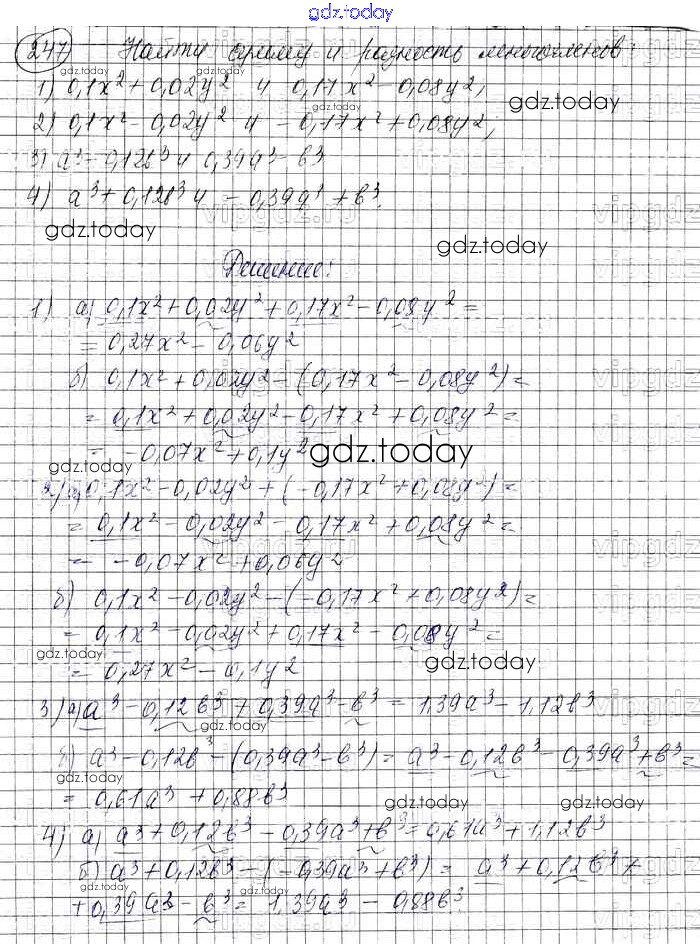 gdz.today
247 Найти сумму и разность многочленов:
gdz.today
1) 0,1x² + 0,02y² и 0,17x² - 0,08y²;
gdz.today
gdz.today
2) 0,1x² - 0,02y² и -0,17x² + 0,08y²;
3) a³ - 0,12b³ и 0,39a³ - b³
4) a³ + 0,12b³ и -0,39a³ + b³.
gdz.today
gdz.today
Решение:
1) а) 0,1x² + 0,02y² + 0,17x² - 0,08y² =
= 0,27x² - 0,06y²
б) 0,1x² + 0,02y² - (0,17x² - 0,08y²) =
= 0,1x² + 0,02y² - 0,17x² + 0,08y² =
= -0,07x² + 0,1y²
gdz.today
gdz.today
2) а) 0,1x² - 0,02y² + (-0,17x² + 0,08y²) =
= 0,1x² - 0,02y² - 0,17x² + 0,08y² =
= -0,07x² + 0,06y²
б) 0,1x² - 0,02y² - (-0,17x² + 0,08y²) =
= 0,1x² - 0,02y² + 0,17x² - 0,08y² =
gdz.today
gdz.today
= 0,27x² - 0,1y²
3) а) a³ - 0,12b³ + 0,39a³ - b³ = 1,39a³ - 1,12b³
gdz.today
б) a³ - 0,12b³ - (0,39a³ - b³) = a³ - 0,12b³ - 0,39a³ + b³ =
gdz.today
= 0,61a³ + 0,88b³
gdz.today
gdz.today
4) а) a³ + 0,12b³ - 0,39a³ + b³ = 0,61a³ + 1,12b³
б) a³ + 0,12b³ - (-0,39a³ + b³) = a³ + 0,12b³ +
gdz.today
gdz.today
+ 0,39a³ - b³ = 1,39a³ - 0,88b³.